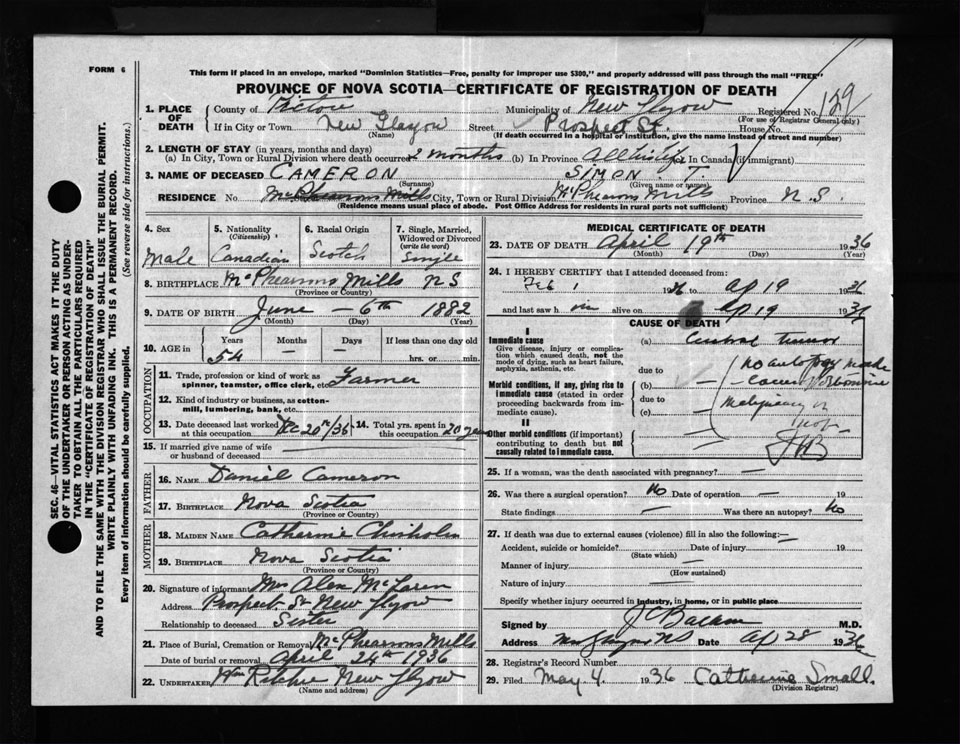 FORM 6
This form if placed in an envelope, marked "Dominion Statistics—Free, penalty for improper use $300," and properly addressed will pass through the mail "FREE"
PROVINCE OF NOVA SCOTIA—CERTIFICATE OF REGISTRATION OF DEATH
1. PLACE OF DEATH
County of Pictou Municipality of New Glasgow Registered No. 129
(For use of Registrar General only)
If in City or Town New Glasgow Street Prospect St. House No.
(Name) (If death occurred in a hospital or institution, give the name instead of street and number)
2. LENGTH OF STAY (in years, months and days)
(a) In City, Town or Rural Division where death occurred 2 months (b) In Province All his life (c) In Canada (if immigrant)
3. NAME OF DECEASED CAMERON SIMON T.
(Surname) (Given name or names)
RESIDENCE No. McPhearsons Mills City, Town or Rural Division McPhearsons Mills Province N.S.
(Residence means usual place of abode. Post Office Address for residents in rural parts not sufficient)
4. Sex
Male
5. Nationality
(Citizenship)
Canadian
6. Racial Origin
Scotch
7. Single, Married, Widowed or Divorced
(write the word)
Single
8. BIRTHPLACE McPhearsons Mills NS
(Province or Country)
9. DATE OF BIRTH June – 6th 1882
(Month) (Day) (Year)
10. AGE in
Years Months Days If less than one day old
54 – – hrs. or min.
OCCUPATION
11. Trade, profession or kind of work as spinner, teamster, office clerk, etc. Farmer
12. Kind of industry or business, as cotton-mill, lumbering, bank, etc.
13. Date deceased last worked at this occupation Dec 20th/36
14. Total yrs. spent in this occupation 20 years
15. If married give name of wife or husband of deceased
FATHER
16. NAME Daniel Cameron
17. BIRTHPLACE Nova Scotia
(Province or Country)
MOTHER
18. MAIDEN NAME Catherine Chisholm
19. BIRTHPLACE Nova Scotia
(Province or Country)
20. Signature of informant Mrs Alex McLaren
Address Prospect St New Glasgow
Relationship to deceased Sister
21. Place of Burial, Cremation or Removal McPhearsons Mills
Date of burial or removal April 24th 1936
22. UNDERTAKER Wm Ritchie New Glasgow
(Name and address)
MEDICAL CERTIFICATE OF DEATH
23. DATE OF DEATH April 19th 1936
(Month) (Day) (Year)
24. I HEREBY CERTIFY that I attended deceased from:
Feb 1 1936 to Ap 19 1936
and last saw h im alive on Ap 19 1936
CAUSE OF DEATH
I
Immediate cause
Give disease, injury or complication which caused death, not the mode of dying, such as heart failure, asphyxia, asthenia, etc.
(a) Cerebral tumor
due to
Morbid conditions, if any, giving rise to immediate cause (stated in order proceeding backwards from immediate cause).
(b) –
due to
(c) –
no autopsy made
malignancy or
JCB
II
Other morbid conditions (if important) contributing to death but not causally related to immediate cause.
25. If a woman, was the death associated with pregnancy? —
26. Was there a surgical operation? No Date of operation — 19
State findings — Was there an autopsy? No
27. If death was due to external causes (violence) fill in also the following:—
Accident, suicide or homicide? — Date of injury 19
(State which)
Manner of injury —
(How sustained)
Nature of injury —
Specify whether injury occurred in industry, in home, or in public place
Signed by M.D.
Address New Glasgow NS Date Ap 28 1936
28. Registrar's Record Number
29. Filed May 4. 1936 Catherine Small.
(Division Registrar)
SEC. 46—VITAL STATISTICS ACT MAKES IT THE DUTY
OF THE UNDERTAKER OR PERSON ACTING AS UNDER-
TAKER TO OBTAIN ALL THE PARTICULARS REQUIRED
IN THE "CERTIFICATE OF REGISTRATION OF DEATH"
AND TO FILE THE SAME WITH THE DIVISION REGISTRAR WHO SHALL ISSUE THE BURIAL PERMIT.
WRITE PLAINLY WITH UNFADING INK. THIS IS A PERMANENT RECORD.
Every item of information should be carefully supplied. (See reverse side for instructions.)